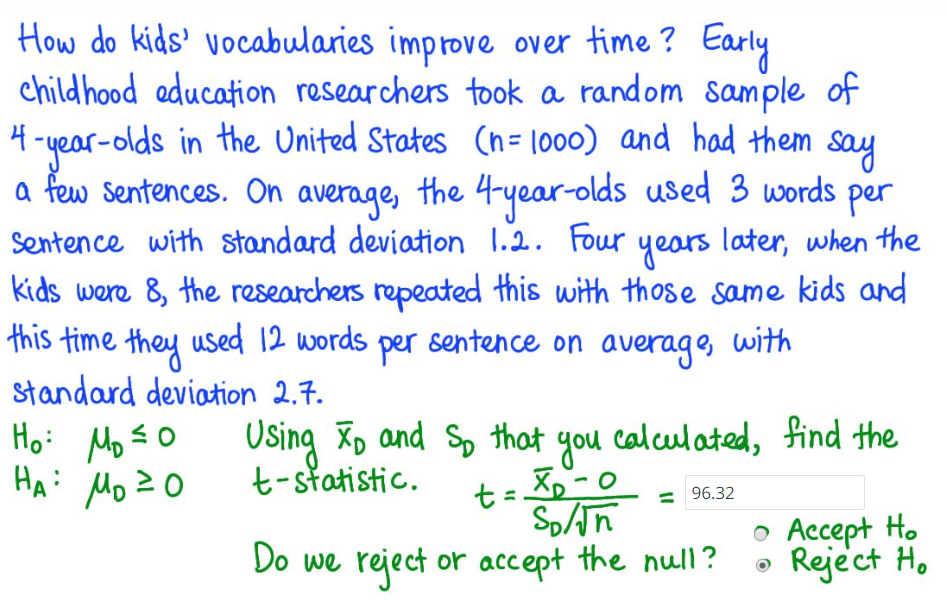 How do kids' vocabularies improve over time? Early
childhood education researchers took a random sample of
4-year-olds in the United States (n=1000) and had them say
a few sentences. On average, the 4-year-olds used 3 words per
sentence with standard deviation 1.2. Four years later, when the
kids were 8, the researchers repeated this with those same kids and
this time they used 12 words per sentence on average, with
standard deviation 2.7.
H₀: μ_D ≤ 0 Using x̄_D and S_D that you calculated, find the
H_A: μ_D ≥ 0 t-statistic. t = (x̄_D - 0)/(S_D/√n) = 96.32
Accept H₀
Do we reject or accept the null? Reject H₀